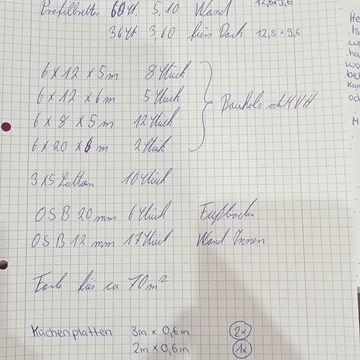 Profilbrett 60St. 5,10 Wand 12,5x9,6
36St 3,60 fürs Dach 12,5 x 9,6
6 x 12 x 5m 8 Stück
6 x 12 x 6m 5 Stück
6 x 8 x 5m 12 Stück
6 x 20 x 6m 2 Stück
Bauholz od. KVH
3x5 Latten 10 Stück
OSB 20 mm 6 Stück Fußboden
OSB 12 mm 17 Stück Wand Innen
Farbe für ca 70 m²
Küchenplatten 3m x 0,6m 2x
2m x 0,6m 1x